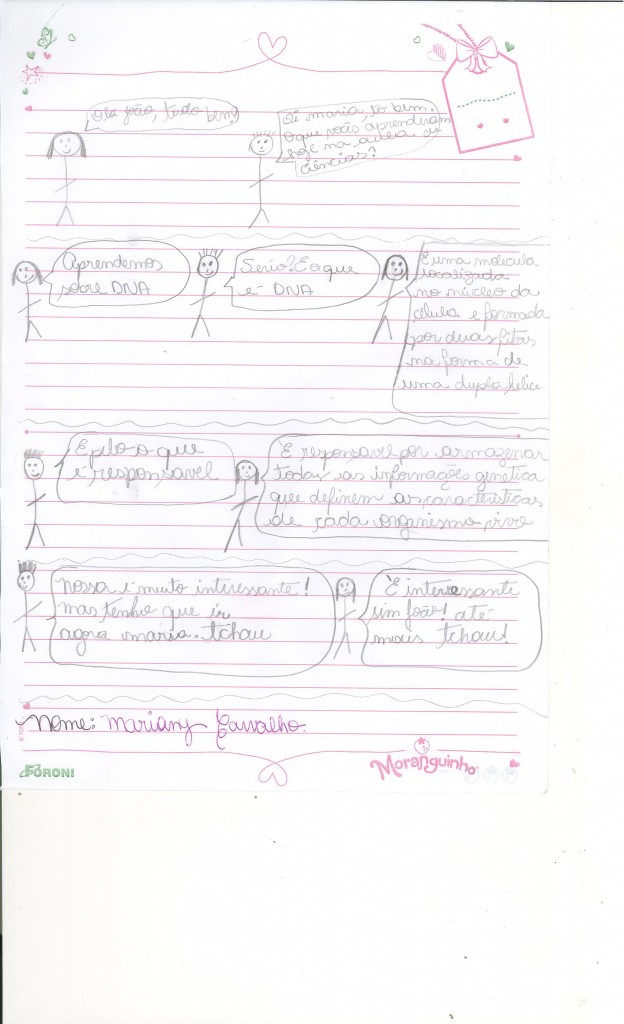 Olá joão, tudo bem?
Oi maria, to bem.
O que vocês aprenderam
hoje na aula de
Ciências?
Aprendemos
sobre DNA
Serio? E o que
é DNA
É uma molecula
localizada
no núcleo da
célula e formada
por duas fitas
na forma de
uma dupla helice
E pelo o que
é responsavel
E responsavel por armazenar
todas as informações genetica
que definem as caracteristicas
de cada organismo vivo
Nossa é muito interessante!
mas tenho que ir
agora maria. tchau
É interessante
sim joão! até
mais tchau!
Nome: Mariany Carvalho.
FORONI
Moranguinho